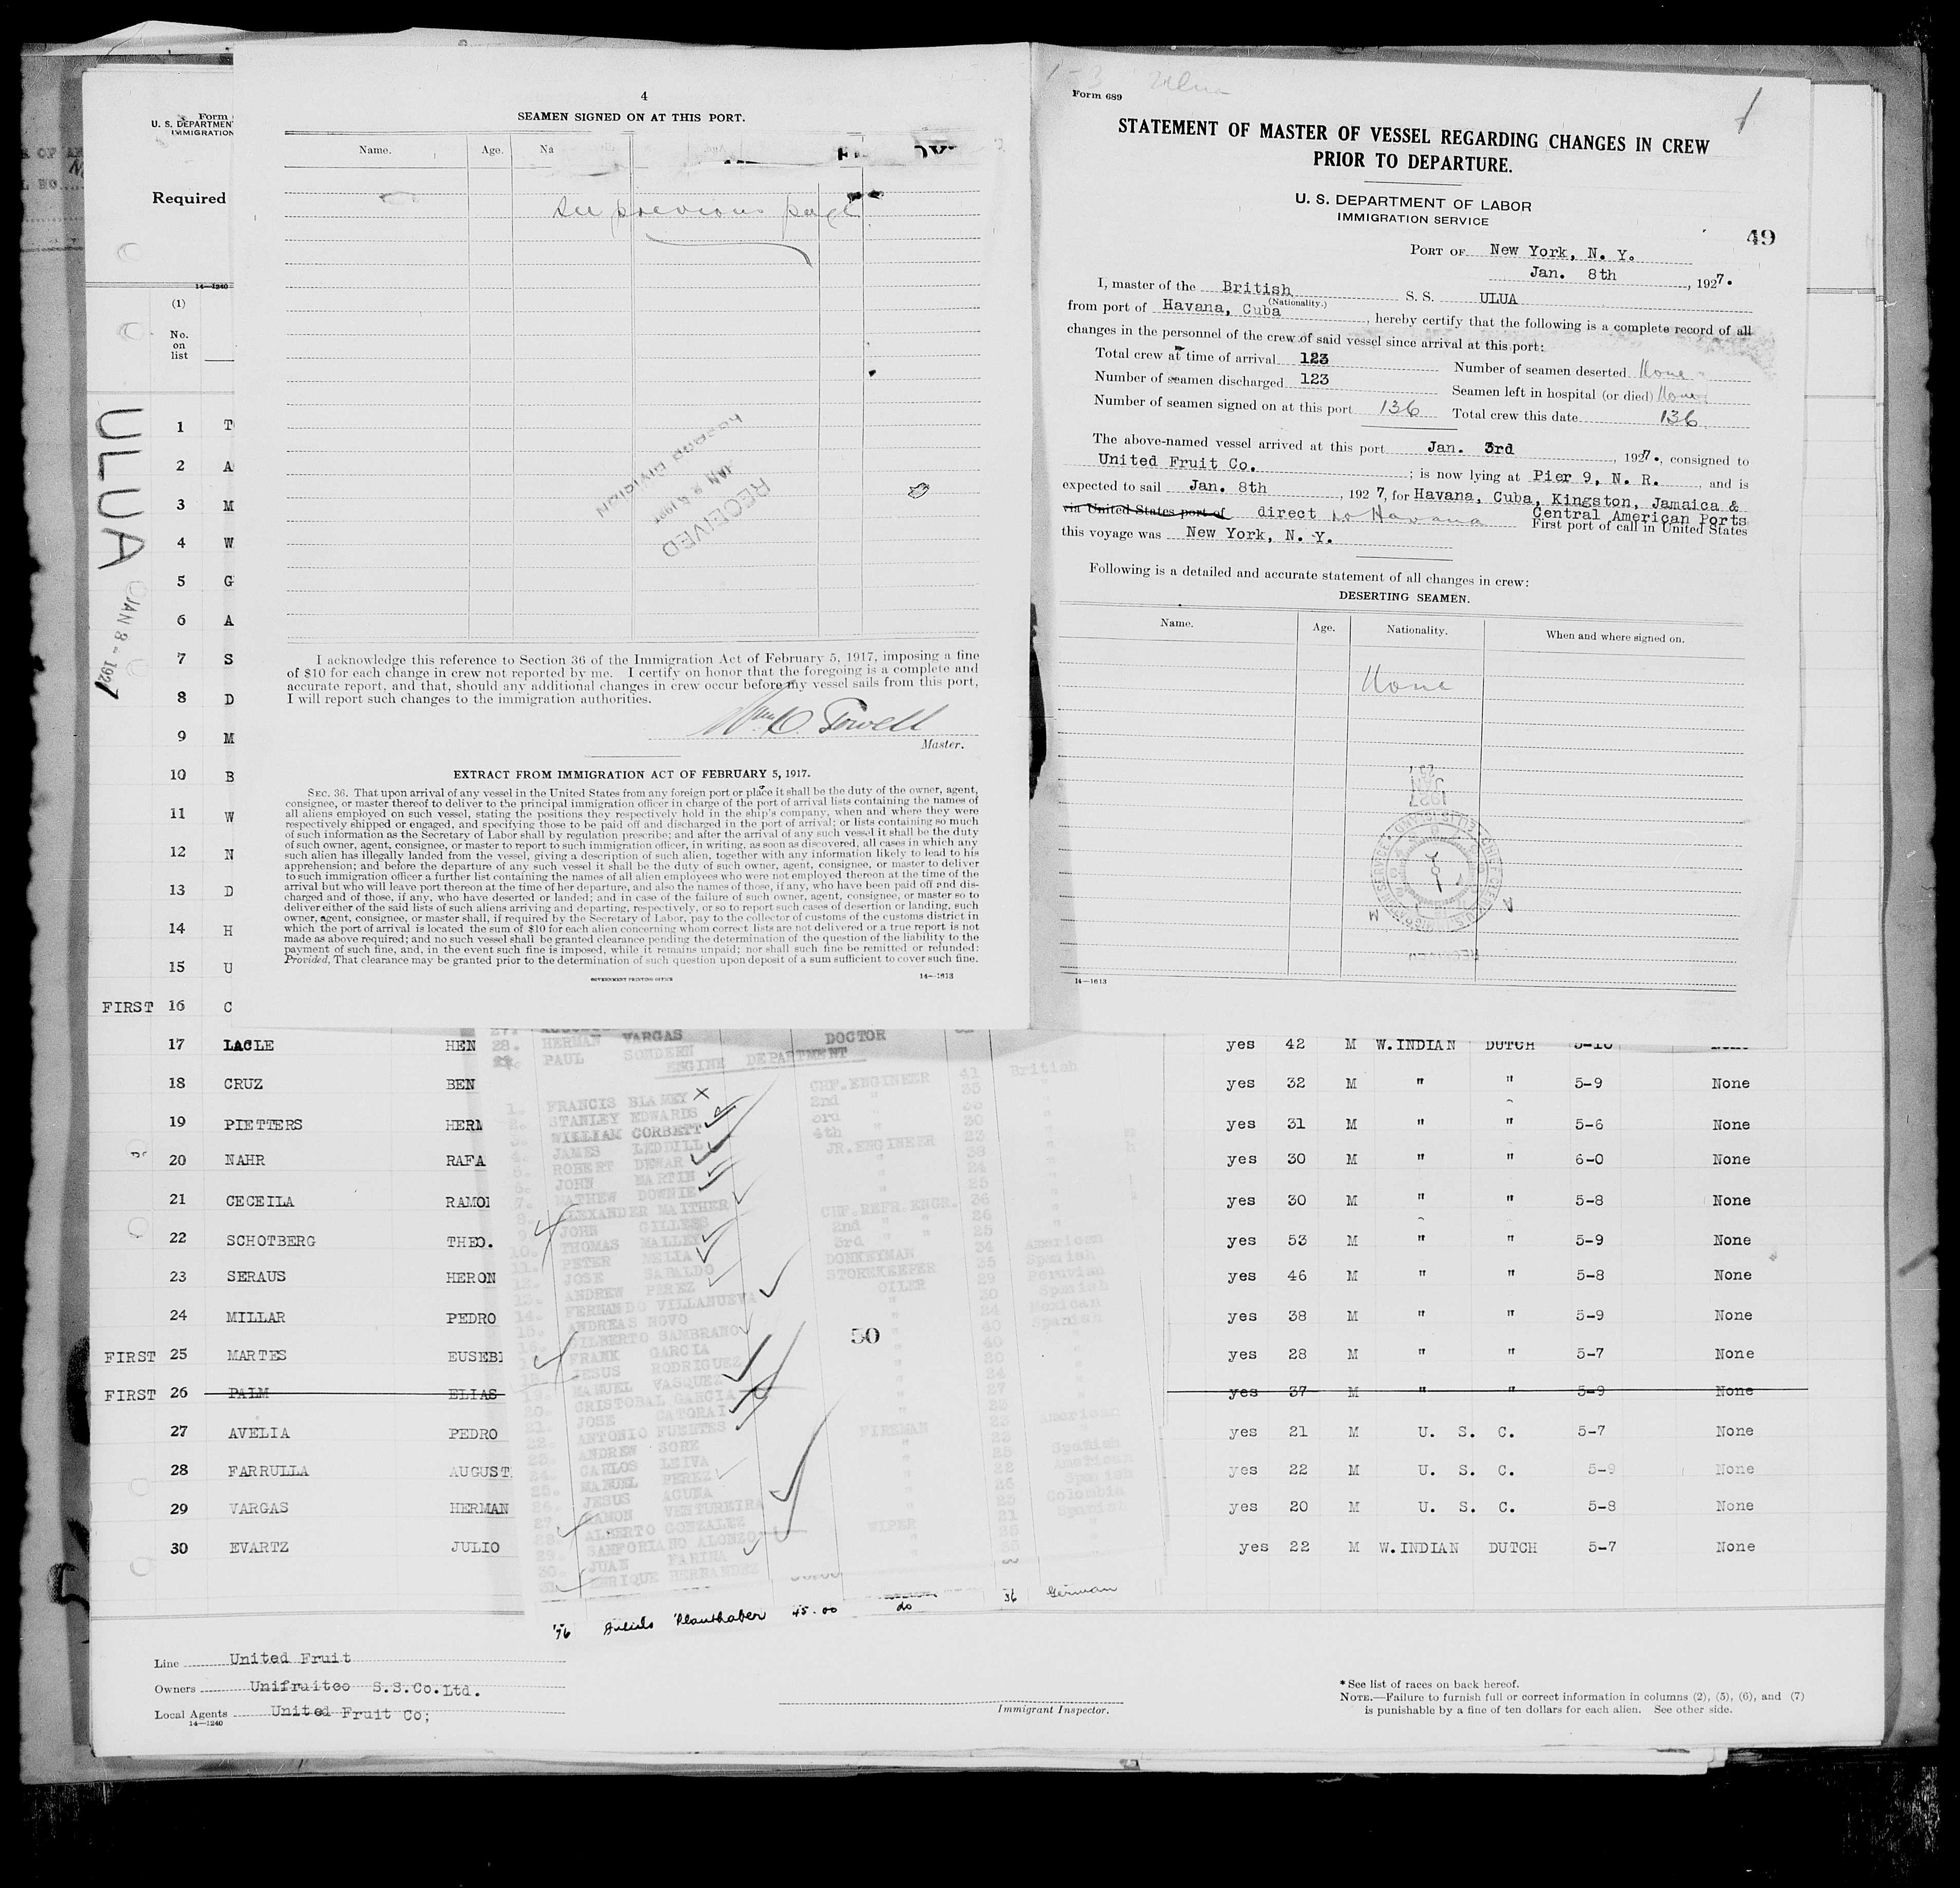 4
SEAMEN SIGNED ON AT THIS PORT.
Name. Age. Na
See previous page
RECEIVED
JAN
RECORD DIVISION
I acknowledge this reference to Section 36 of the Immigration Act of February 5, 1917, imposing a fine
of $10 for each change in crew not reported by me. I certify on honor that the foregoing is a complete and
accurate report, and that, should any additional changes in crew occur before my vessel sails from this port,
I will report such changes to the immigration authorities.
Master.
EXTRACT FROM IMMIGRATION ACT OF FEBRUARY 5, 1917.
SEC. 36. That upon arrival of any vessel in the United States from any foreign port or place it shall be the duty of the owner, agent,
consignee, or master thereof to deliver to the principal immigration officer in charge of the port of arrival lists containing the names of
all aliens employed on such vessel, stating the positions they respectively hold in the ship's company, when and where they were
respectively shipped or engaged, and specifying those to be paid off and discharged in the port of arrival; or lists containing so much
of such information as the Secretary of Labor shall by regulation prescribe; and after the arrival of any such vessel it shall be the duty
of such owner, agent, consignee, or master to report to such immigration officer, in writing, as soon as discovered, all cases in which any
such alien has illegally landed from the vessel, giving a description of such alien, together with any information likely to lead to his
apprehension; and before the departure of any such vessel it shall be the duty of such owner, agent, consignee, or master to deliver
to such immigration officer a further list containing the names of all alien employees who were not employed thereon at the time of the
arrival but who will leave port thereon at the time of her departure, and also the names of those, if any, who have been paid off and dis-
charged and of those, if any, who have deserted or landed; and in case of the failure of such owner, agent, consignee, or master so to
deliver either of the said lists of such aliens arriving and departing, respectively, or so to report such cases of desertion or landing, such
owner, agent, consignee, or master shall, if required by the Secretary of Labor, pay to the collector of customs of the customs district in
which the port of arrival is located the sum of $10 for each alien concerning whom correct lists are not delivered or a true report is not
made as above required; and no such vessel shall be granted clearance pending the determination of the question of the liability to the
payment of such fine, and, in the event such fine is imposed, while it remains unpaid; nor shall such fine be remitted or refunded:
Provided, That clearance may be granted prior to the determination of such question upon deposit of a sum sufficient to cover such fine.
GOVERNMENT PRINTING OFFICE 14—1613
Form 689
STATEMENT OF MASTER OF VESSEL REGARDING CHANGES IN CREW
PRIOR TO DEPARTURE.
U. S. DEPARTMENT OF LABOR
IMMIGRATION SERVICE
49
PORT OF New York, N. Y.
Jan. 8th, 1927.
I, master of the British S. S. ULUA
(Nationality.)
from port of Havana, Cuba, hereby certify that the following is a complete record of all
changes in the personnel of the crew of said vessel since arrival at this port:
Total crew at time of arrival 123 Number of seamen deserted None
Number of seamen discharged 123 Seamen left in hospital (or died) None
Number of seamen signed on at this port 136 Total crew this date 136
The above-named vessel arrived at this port Jan. 3rd, 1927., consigned to
United Fruit Co.; is now lying at Pier 9, N. R., and is
expected to sail Jan. 8th, 1927, for Havana, Cuba, Kingston, Jamaica &
Central American Ports
via United States port of direct to Havana First port of call in United States
this voyage was New York, N. Y.
Following is a detailed and accurate statement of all changes in crew:
DESERTING SEAMEN.
Name. Age. Nationality. When and where signed on.
None
1927
14—1613
Form
U. S. DEPARTMEN
IMMIGRATION
Required
14—1240
(1)
No.
on
list
ULUA
JAN 8 - 1927
1 T
2 A
3 M
4 W
5 G
6 A
7 S
8 D
9 M
10 B
11 W
12 N
13 D
14 H
15 U
FIRST 16 C
17 LACLE HEN yes 42 M W.INDIAN DUTCH 5-10
18 CRUZ BEN yes 32 M " " 5-9 None
19 PIETTERS HERM yes 31 M " " 5-6 None
20 NAHR RAFA yes 30 M " " 6-0 None
21 CECEILA RAMO yes 30 M " " 5-8 None
22 SCHOTBERG THEO. yes 53 M " " 5-9 None
23 SERAUS HERON yes 46 M " " 5-8 None
24 MILLAR PEDRO yes 38 M " " 5-9 None
FIRST 25 MARTES EUSEB yes 28 M " " 5-7 None
FIRST 26 PALM ELIAS yes 37 M " " 5-9 None
27 AVELIA PEDRO yes 21 M U. S. C. 5-7 None
28 FARRULLA AUGUST yes 22 M U. S. C. 5-9 None
29 VARGAS HERMAN yes 20 M U. S. C. 5-8 None
30 EVARTZ JULIO yes 22 M W.INDIAN DUTCH 5-7 None
28. HERMAN VARGAS
PAUL SONDERN DOCTOR
ENGINE DEPARTMENT
1. FRANCIS BLAMEY CHF.ENGINEER 41 British
2. STANLEY EDWARDS 2nd " 35
3. WILLIAM CORBETT 3rd "
4. JAMES LEDDILL 4th " 30
5. ROBERT DEWAR JR.ENGINEER 23
6. JOHN MARTIN
7. MATHEW DOWNIE
8. ALEXANDER MAITHER
9. JOHN GILLESS CHF.REFR.ENGR.
10. THOMAS MALLEY 2nd " "
11. PETER MELIA 3rd " "
12. JOSE SABALDO DONKEYMAN
13. ANDREW PEREZ STOREKEEPER
14. FERNANDO VILLANUEVA OILER
15. ANDREAS NOVO
16. GILBERTO SAMBRANO
FRANK GARCIA
JESUS RODRIGUEZ
19. MANUEL VASQUEZ
20. CRISTOBAL GARCIA
21. JOSE CATORAI
22. ANTONIO FUENTES
23. ANDREW SORE FIREMAN
24. CARLOS LEIVA
25. MANUEL PEREZ
26. JESUS ACUNA
27. RAMON VENTUREIRA
28. ALBERTO GONZALEZ
29. SANFORIANO ALONZO WIPER
30. JUAN FARINA
31. ENRIQUE HERNANDEZ
50
45.00 do 36 German
Line United Fruit
Owners Unifruitco S.S.Co.Ltd.
Local Agents United Fruit Co;
14—1240
Immigrant Inspector.
* See list of races on back hereof.
NOTE.—Failure to furnish full or correct information in columns (2), (5), (6), and (7)
is punishable by a fine of ten dollars for each alien. See other side.